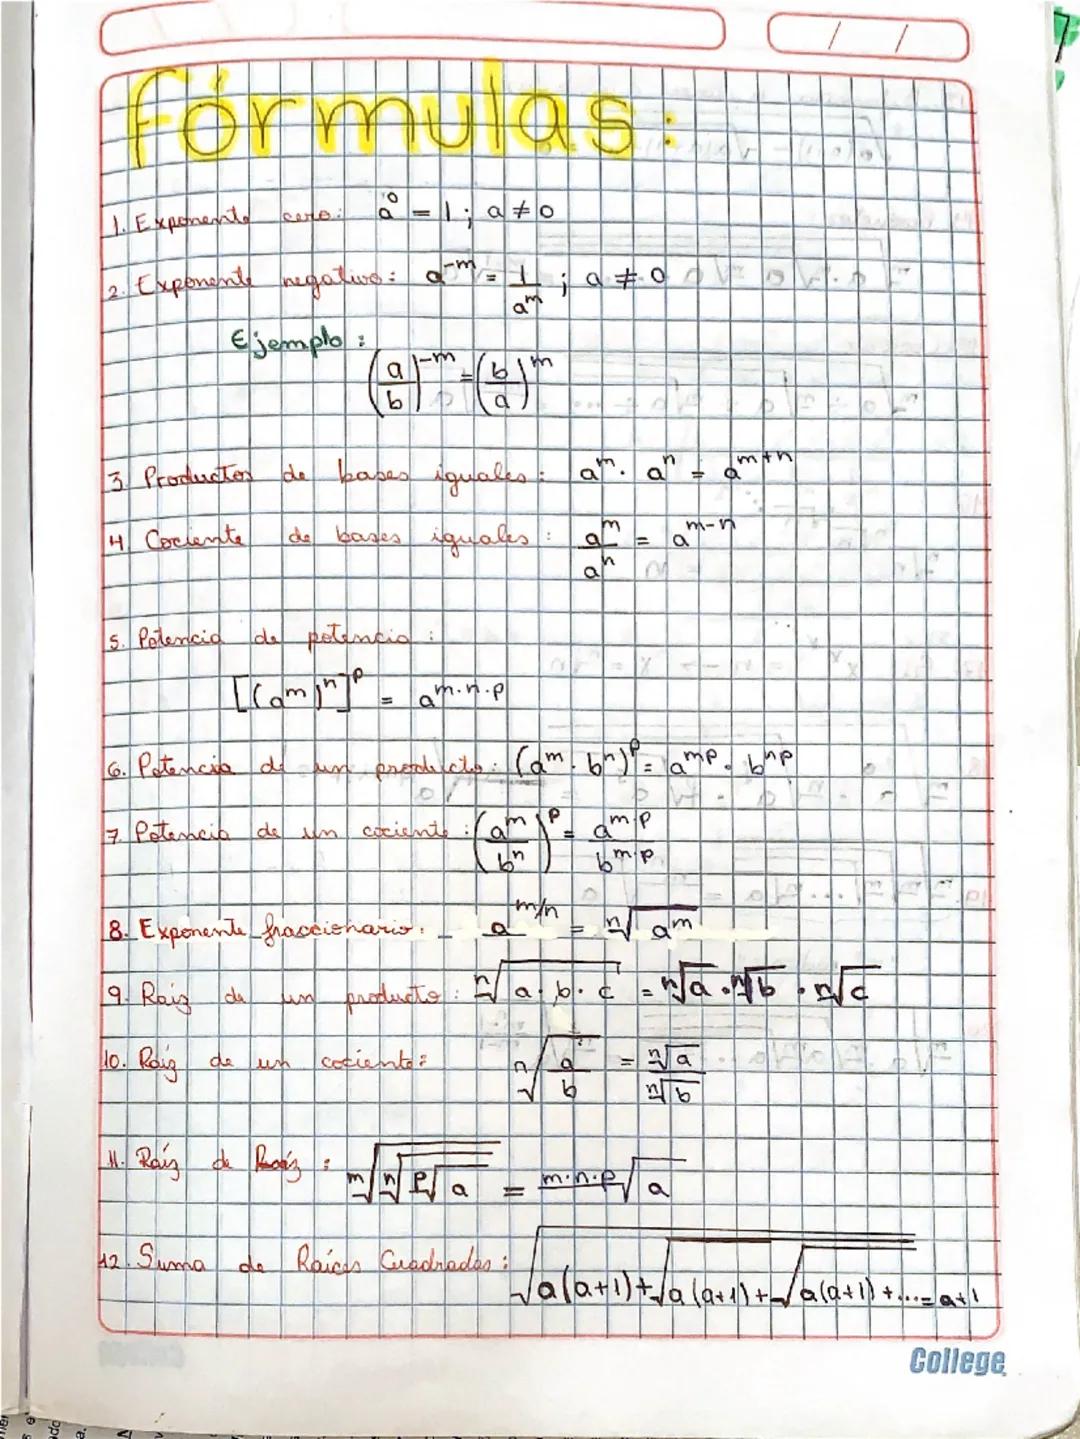 fórmulas:
1. Exponente cero: a⁰ = 1; a ≠ 0
2. Exponente negativo: a⁻ᵐ = 1/aᵐ ; a ≠ 0
Ejemplo:
(a/b)⁻ᵐ = (b/a)ᵐ
3. Productos de bases iguales: aᵐ · aⁿ = aᵐ⁺ⁿ
4 Cociente de bases iguales: aᵐ/aⁿ = aᵐ⁻ⁿ
5. Potencia de potencia:
[(aᵐ)ⁿ]ᵖ = a^(m·n·p)
6. Potencia de un producto: (aᵐ · bⁿ)ᵖ = aᵐᵖ · bⁿᵖ
7. Potencia de un cociente: (aᵐ/bⁿ)ᵖ = a^(m·p)/b^(m·p)
8. Exponente fraccionario: a^(m/n) = ⁿ√(aᵐ)
9. Raiz de un producto: ⁿ√(a · b · c) = ⁿ√a · ⁿ√b · ⁿ√c
10. Raiz de un cociente: ⁿ√(a/b) = ⁿ√a/ⁿ√b
11. Raíz de Raíz: ᵐ√(ⁿ√(ᵖ√a)) = ᵐ·ⁿ·ᵖ√a
12. Suma de Raices Cuadradas: √(a(a+1)+√(a(a+1)+√(a(a+1)+... = a+1
College